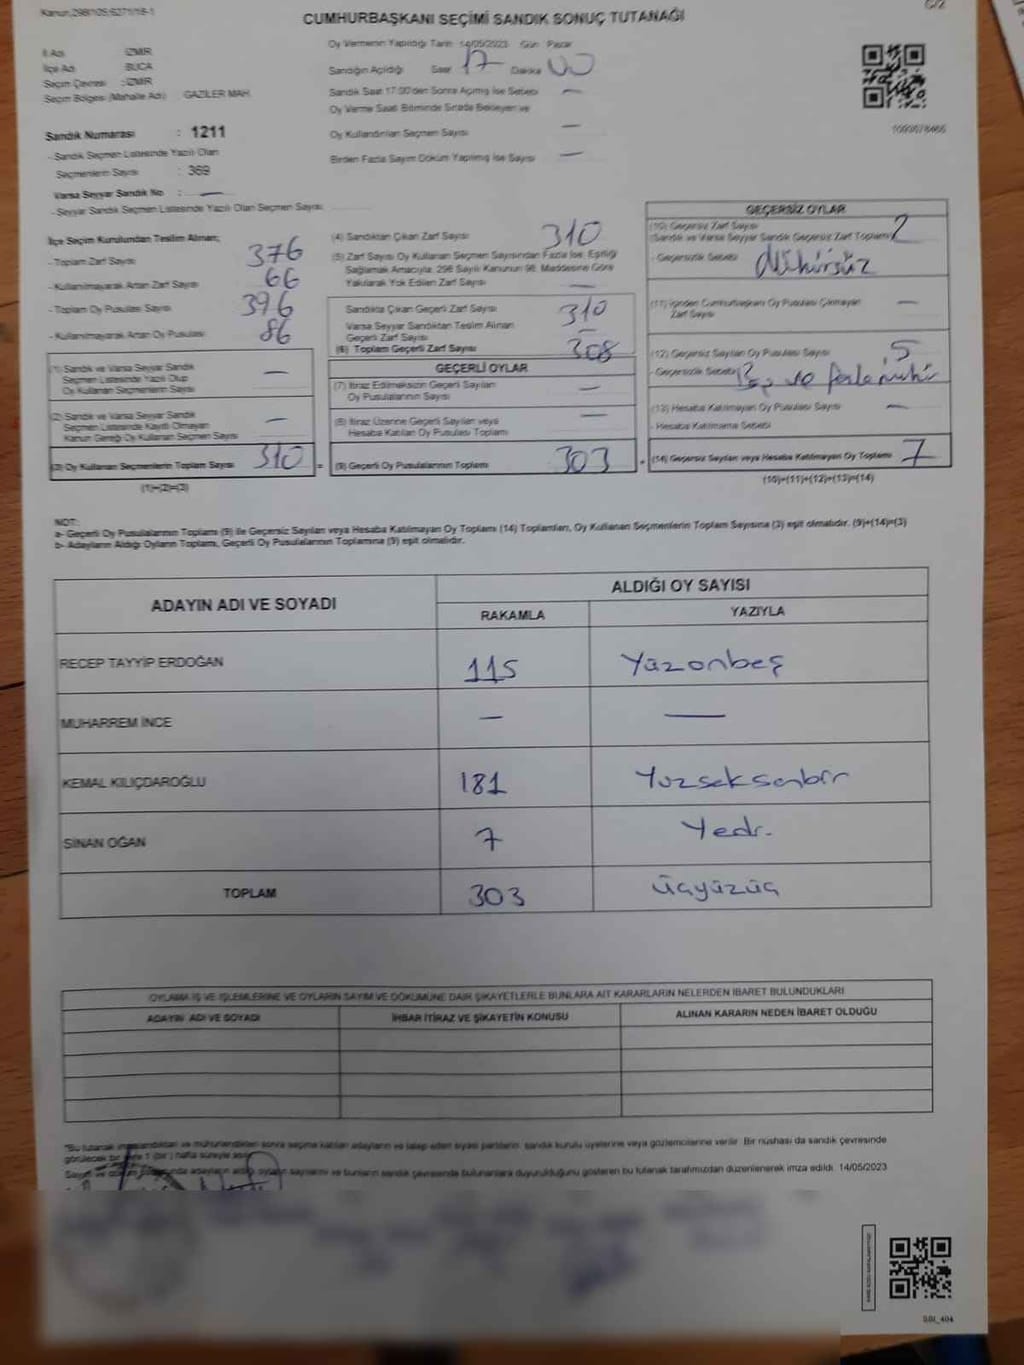 Kanun;298/105,6271/18-1
C/2
CUMHURBAŞKANI SEÇİMİ SANDIK SONUÇ TUTANAĞI
İl Adı : İZMİR
İlçe Adı : BUCA
Seçim Çevresi : İZMİR
Seçim Bölgesi (Mahalle Adı) : GAZİLER MAH.
Sandık Numarası : 1211
- Sandık Seçmen Listesinde Yazılı Olan
Seçmenlerin Sayısı : 369
Varsa Seyyar Sandık No : —
- Seyyar Sandık Seçmen Listesinde Yazılı Olan Seçmen Sayısı:
Oy Vermenin Yapıldığı Tarih : 14/05/2023 Gün : Pazar
Sandığın Açıldığı Saat : 17 Dakika : 00
Sandık Saat 17:00'den Sonra Açılmış İse Sebebi —
Oy Verme Saati Bitiminde Sırada Bekleyen ve
Oy Kullandırılan Seçmen Sayısı —
Birden Fazla Sayım Döküm Yapılmış İse Sayısı —
İlçe Seçim Kurulundan Teslim Alınan;
- Toplam Zarf Sayısı 376
- Kullanılmayarak Artan Zarf Sayısı 66
- Toplam Oy Pusulası Sayısı 396
- Kullanılmayarak Artan Oy Pusulası 86
(1) Sandık ve Varsa Seyyar Sandık
Seçmen Listesinde Yazılı Olup
Oy Kullanan Seçmenlerin Sayısı —
(2) Sandık ve Varsa Seyyar Sandık
Seçmen Listesinde Kayıtlı Olmayan
Kanun Gereği Oy Kullanan Seçmen Sayısı —
(3) Oy Kullanan Seçmenlerin Toplam Sayısı 310 =
(1)+(2)=(3)
(4) Sandıktan Çıkan Zarf Sayısı 310
(5) Zarf Sayısı Oy Kullanan Seçmen Sayısından Fazla İse, Eşitliği
Sağlamak Amacıyla; 298 Sayılı Kanunun 98. Maddesine Göre
Yakılarak Yok Edilen Zarf Sayısı —
Sandıkta Çıkan Geçerli Zarf Sayısı 310
Varsa Seyyar Sandıktan Teslim Alınan
Geçerli Zarf Sayısı —
(6) Toplam Geçerli Zarf Sayısı 308
GEÇERLİ OYLAR
(7) İtiraz Edilmeksizin Geçerli Sayılan
Oy Pusulalarının Sayısı —
(8) İtiraz Üzerine Geçerli Sayılan veya
Hesaba Katılan Oy Pusulası Toplamı —
(9) Geçerli Oy Pusulalarının Toplamı 303 +
GEÇERSİZ OYLAR
(10) Geçersiz Zarf Sayısı
(Sandık ve Varsa Seyyar Sandık Geçersiz Zarf Toplamı) 2
- Geçersizlik Sebebi Mühürsüz
(11) İçinden Cumhurbaşkanı Oy Pusulası Çıkmayan
Zarf Sayısı —
(12) Geçersiz Sayılan Oy Pusulası Sayısı 5
- Geçersizlik Sebebi Boş ve fazla mühür
(13) Hesaba Katılmayan Oy Pusulası Sayısı —
- Hesaba Katılmama Sebebi
(14) Geçersiz Sayılan veya Hesaba Katılmayan Oy Toplamı 7
(10)+(11)+(12)+(13)=(14)
NOT:
a- Geçerli Oy Pusulalarının Toplamı (9) ile Geçersiz Sayılan veya Hesaba Katılmayan Oy Toplamı (14) Toplamları, Oy Kullanan Seçmenlerin Toplam Sayısına (3) eşit olmalıdır. (9)+(14)=(3)
b- Adayların Aldığı Oyların Toplamı, Geçerli Oy Pusulalarının Toplamına (9) eşit olmalıdır.
ADAYIN ADI VE SOYADI
ALDIĞI OY SAYISI
RAKAMLA YAZIYLA
RECEP TAYYİP ERDOĞAN 115 Yüzonbeş
MUHARREM İNCE — —
KEMAL KILIÇDAROĞLU 181 Yüzseksenbir
SİNAN OĞAN 7 Yedi.
TOPLAM 303 üçyüzüç
OYLAMA İŞ VE İŞLEMLERİNE VE OYLARIN SAYIM VE DÖKÜMÜNE DAİR ŞİKAYETLERLE BUNLARA AİT KARARLARIN NELERDEN İBARET BULUNDUKLARI
ADAYIN ADI VE SOYADI İHBAR İTİRAZ VE ŞİKAYETİN KONUSU ALINAN KARARIN NEDEN İBARET OLDUĞU
"Bu tutanak imzalandıktan ve mühürlendikten sonra seçime katılan adayların ve talep eden siyasi partilerin, sandık kurulu üyelerine veya gözlemcilerine verilir. Bir nüshası da sandık çevresinde
görülecek bir yere 1 (bir) hafta süreyle asılır.
Sayım ve döküm sonunda adayların aldığı oyların sayılarını ve bunların sandık çevresinde bulunanlara duyurulduğunu gösteren bu tutanak tarafımızdan düzenlenerek imza edildi. 14/05/2023